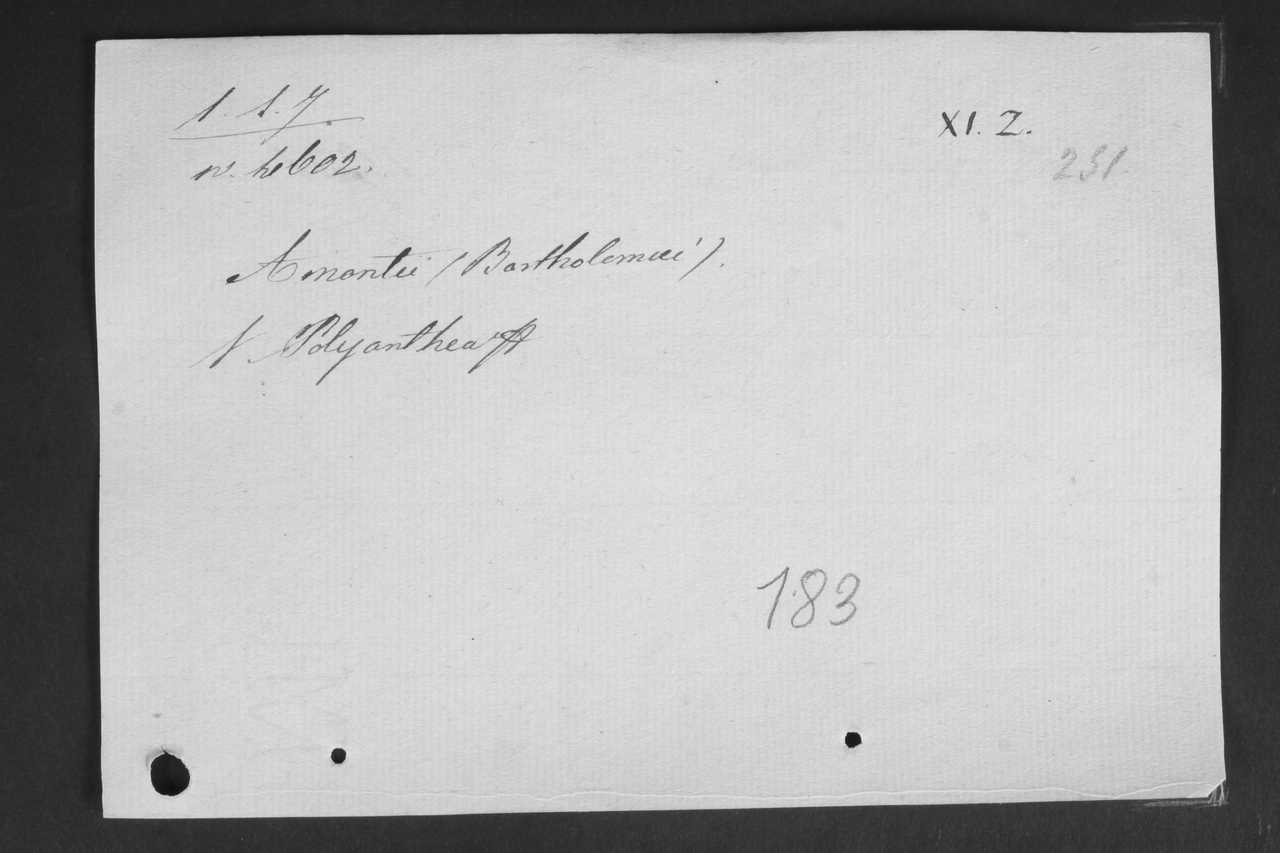 1. 1. 7.
XI. Z.
n. 4602.
251.
Amantii (Bartholemaei).
V. Polyanthea
183